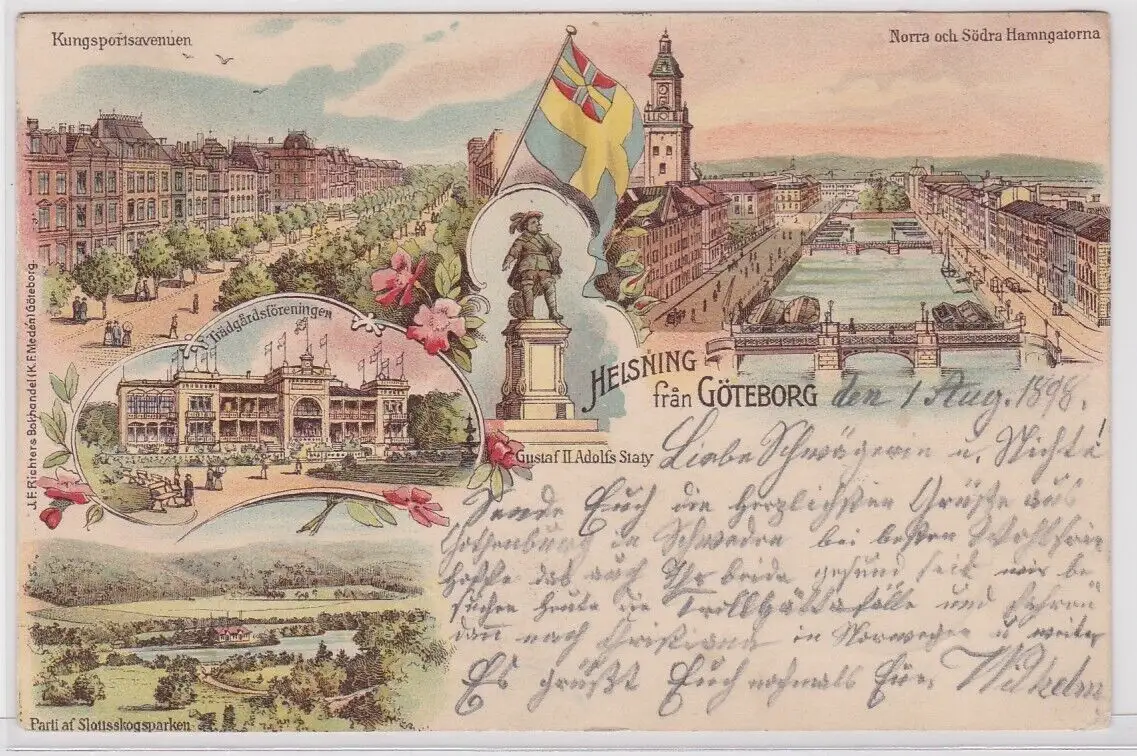 Kungsportsavenuen
Norra och Södra Hamngatorna
Trädgårdsföreningen
J.F. Richters Bokhandel (K.F. Medén) Göteborg.
HELSNING
från GÖTEBORG
den 1 Aug. 1898.
Gustaf II. Adolfs Staty
Liebe Schwägerin u. Nichte!
Sende Euch die herzlichsten Grüße aus
Gothenburg in Schweden bei bestem Wohlsein
hoffe das auch Ihr beide gesund seit wir be
suchen heute die Trollhättafälle und fahren
dan nach Christiana in Norwegen u weiter
Es grüßt Euch nochmals Euer Wilhelm
Parti af Slottsskogsparken